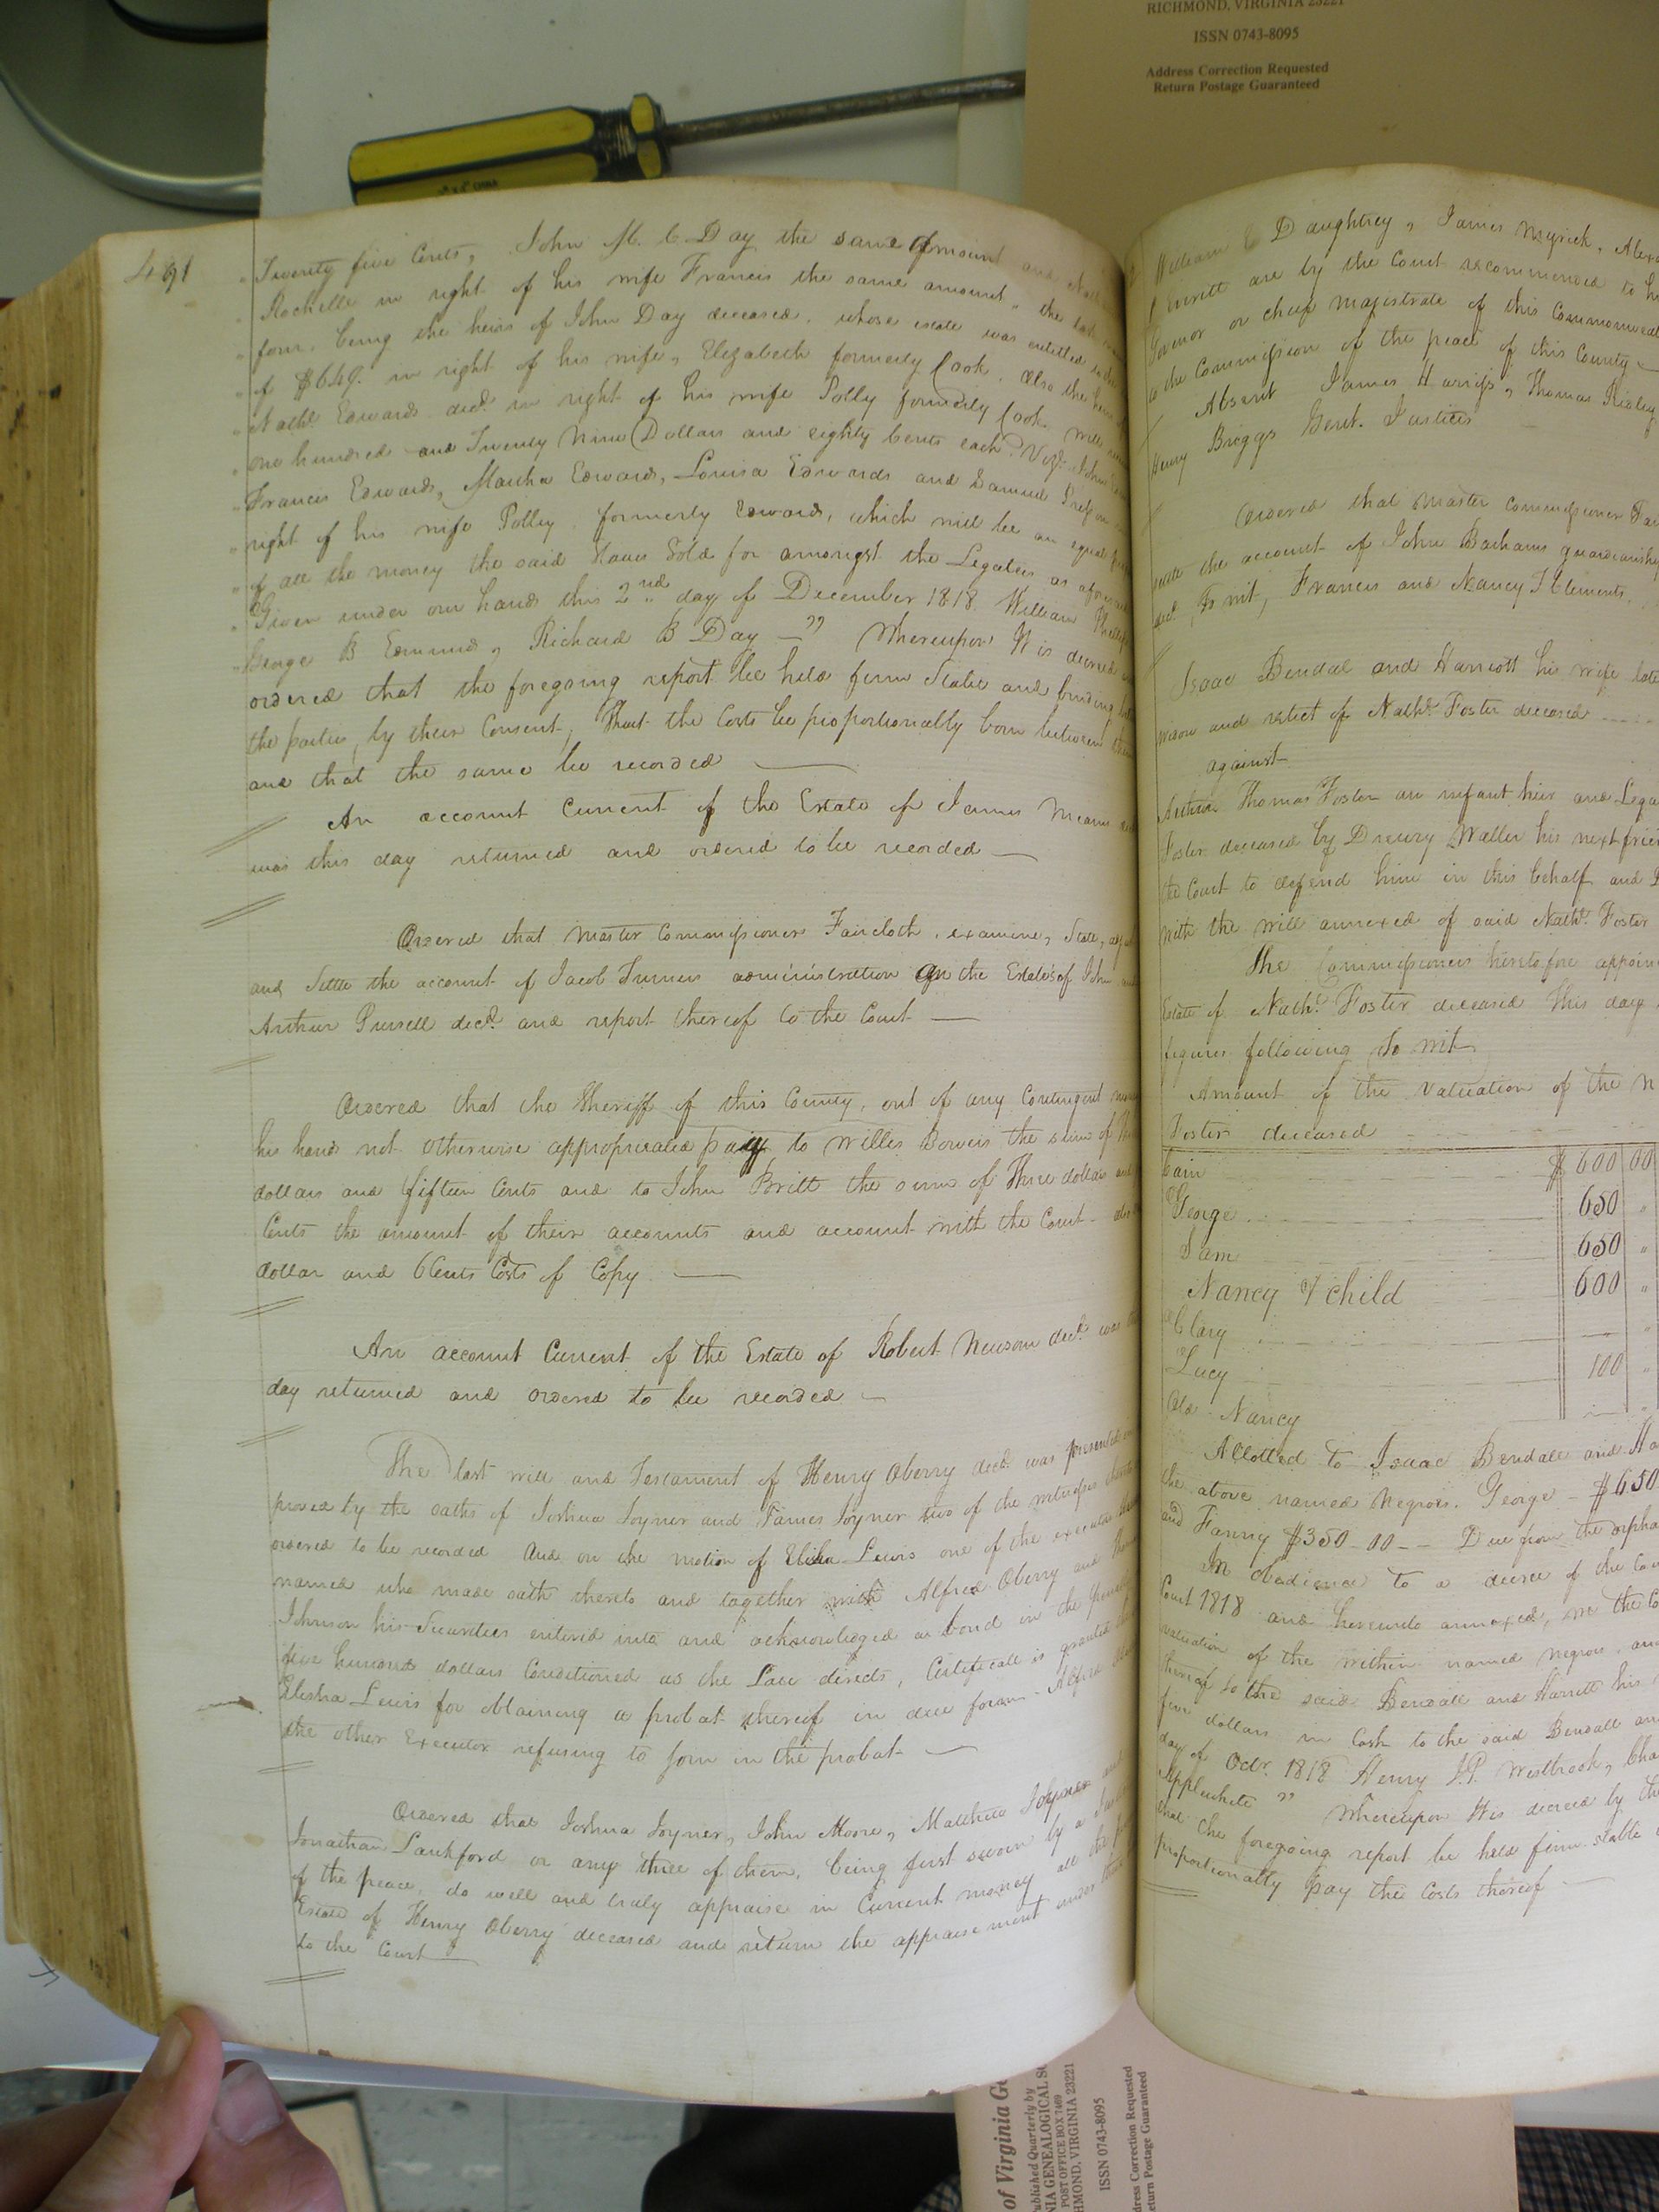 RICHMOND, VIRGINIA 23221
ISSN 0743-8095
Address Correction Requested
Return Postage Guaranteed
491
" Twenty five Cents, John M. C. Day the same amount and
" Rochelle in right of his wife Francis the same amount " the
" four, being the heirs of John Day deceased, whose estate was entitled
" of $649. in right of his wife, Elizabeth formerly Cook. Also the heirs
" Nathl Edwards decd in right of his wife Polly formerly Cook, will
" one hundred and Twenty Nine Dollars and eighty Cents each, Vizt John
" Francis Edwards, Martha Edwards, Louisa Edwards and Samuel
" right of his wife Polley, formerly Edwards, which will be an equal
" of all the money the said slaves Sold for amongst the Legatees as
" Given under our hands this 2nd day of December 1818. William
" George B Edmunds, Richard B Day —" Whereupon It is decreed
ordered that the foregoing report be held firm Stable and binding
the parties, by their Consent, that the Costs be proportionally born between
and that the same be recorded
An account Current of the Estate of James Mearn
was this day returned and ordered to be recorded —
Ordered that Master Commissioner Faircloth, examine, State,
and Settle the account of Jacob Turners administration on the Estates of John
Arthur Pursell decd. and report thereof to the Court —
Ordered that the Sheriff of this County, out of any Contingent
his hands not otherwise appropriated pay to Willis Bowers the sum of
dollars and fifteen Cents and to John Britt the sum of Three dollars and
Cents the amount of their accounts and account with the Court
dollar and 6 Cents Costs of Copy —
An account Current of the Estate of Robert Newsom decd. was
day returned and ordered to be recorded —
The last will and Testament of Henry Oberry decd. was presented
proved by the oaths of Joshua Joyner and James Joyner two of the witnesses
ordered to be recorded And on the motion of Elisha Lewis one of the executors
named who made oath thereto and together with Alfred Oberry and
Johnson his Securities entered into and acknowledged a bond in the
five hundred dollars Conditioned as the Law directs, Certificate is granted
Elisha Lewis for obtaining a probat thereof in due form — Alfred
the other Executor refusing to join in the probat —
Ordered that Joshua Joyner, John Moore, Matthew Joyner
Jonathan Lankford or any three of them, being first sworn by a
of the peace, do well and truly appraise in Current money all the
Estate of Henry Oberry deceased and return the appraisement under
to the Court
William E Daughtrey, James Myrick,
are by the Court recommended to
Governor or chief magistrate of this Commonwealth
to the Commission of the peace of this County —
Absent James Harriss, Thomas Ridley,
Henry Briggs Gent. Justices
Ordered that Master Commissioner
state the account of John Barhams guardianship
decd. To wit, Francis and Nancy T Clements,
Isaac Bendal and Harriott his wife late
widow and relict of Nathl. Foster deceased
against
Arthur Thomas Foster an infant heir and
Foster deceased by Drewry Waller his next
the Court to defend him in this behalf and
with the will annexed of said Nathl. Foster
The Commissioners heretofore
Estate of Nathl. Foster deceased This day
figures following To wit
Amount of the valuation of the
Foster deceased
Cain $ 600 00
George 650 "
Sam 650 "
Nancy & child 600 "
Clary
Lucy 100 "
Old Nancy
Allotted to Isaac Bendall and
the above named Negroes. George — $650
and Fanny $350-00 — Due from the
In obedience to a decree of the
Court 1818 and hereunto annexed, we the
valuation of the within named negroes, and
thereof to the said Bendall and Harriett his
five dollars in Cash to the said Bendall and
day of Octr. 1818 Henry J.P. Westbrook,
Applewhite " Whereupon It is decreed by the
that the foregoing report be held firm stable
proportionally pay the Costs thereof —
of Virginia
Published Quarterly by
VIRGINIA GENEALOGICAL
POST OFFICE BOX 7469
RICHMOND, VIRGINIA 23221
ISSN 0743-8095
Address Correction Requested
Return Postage Guaranteed